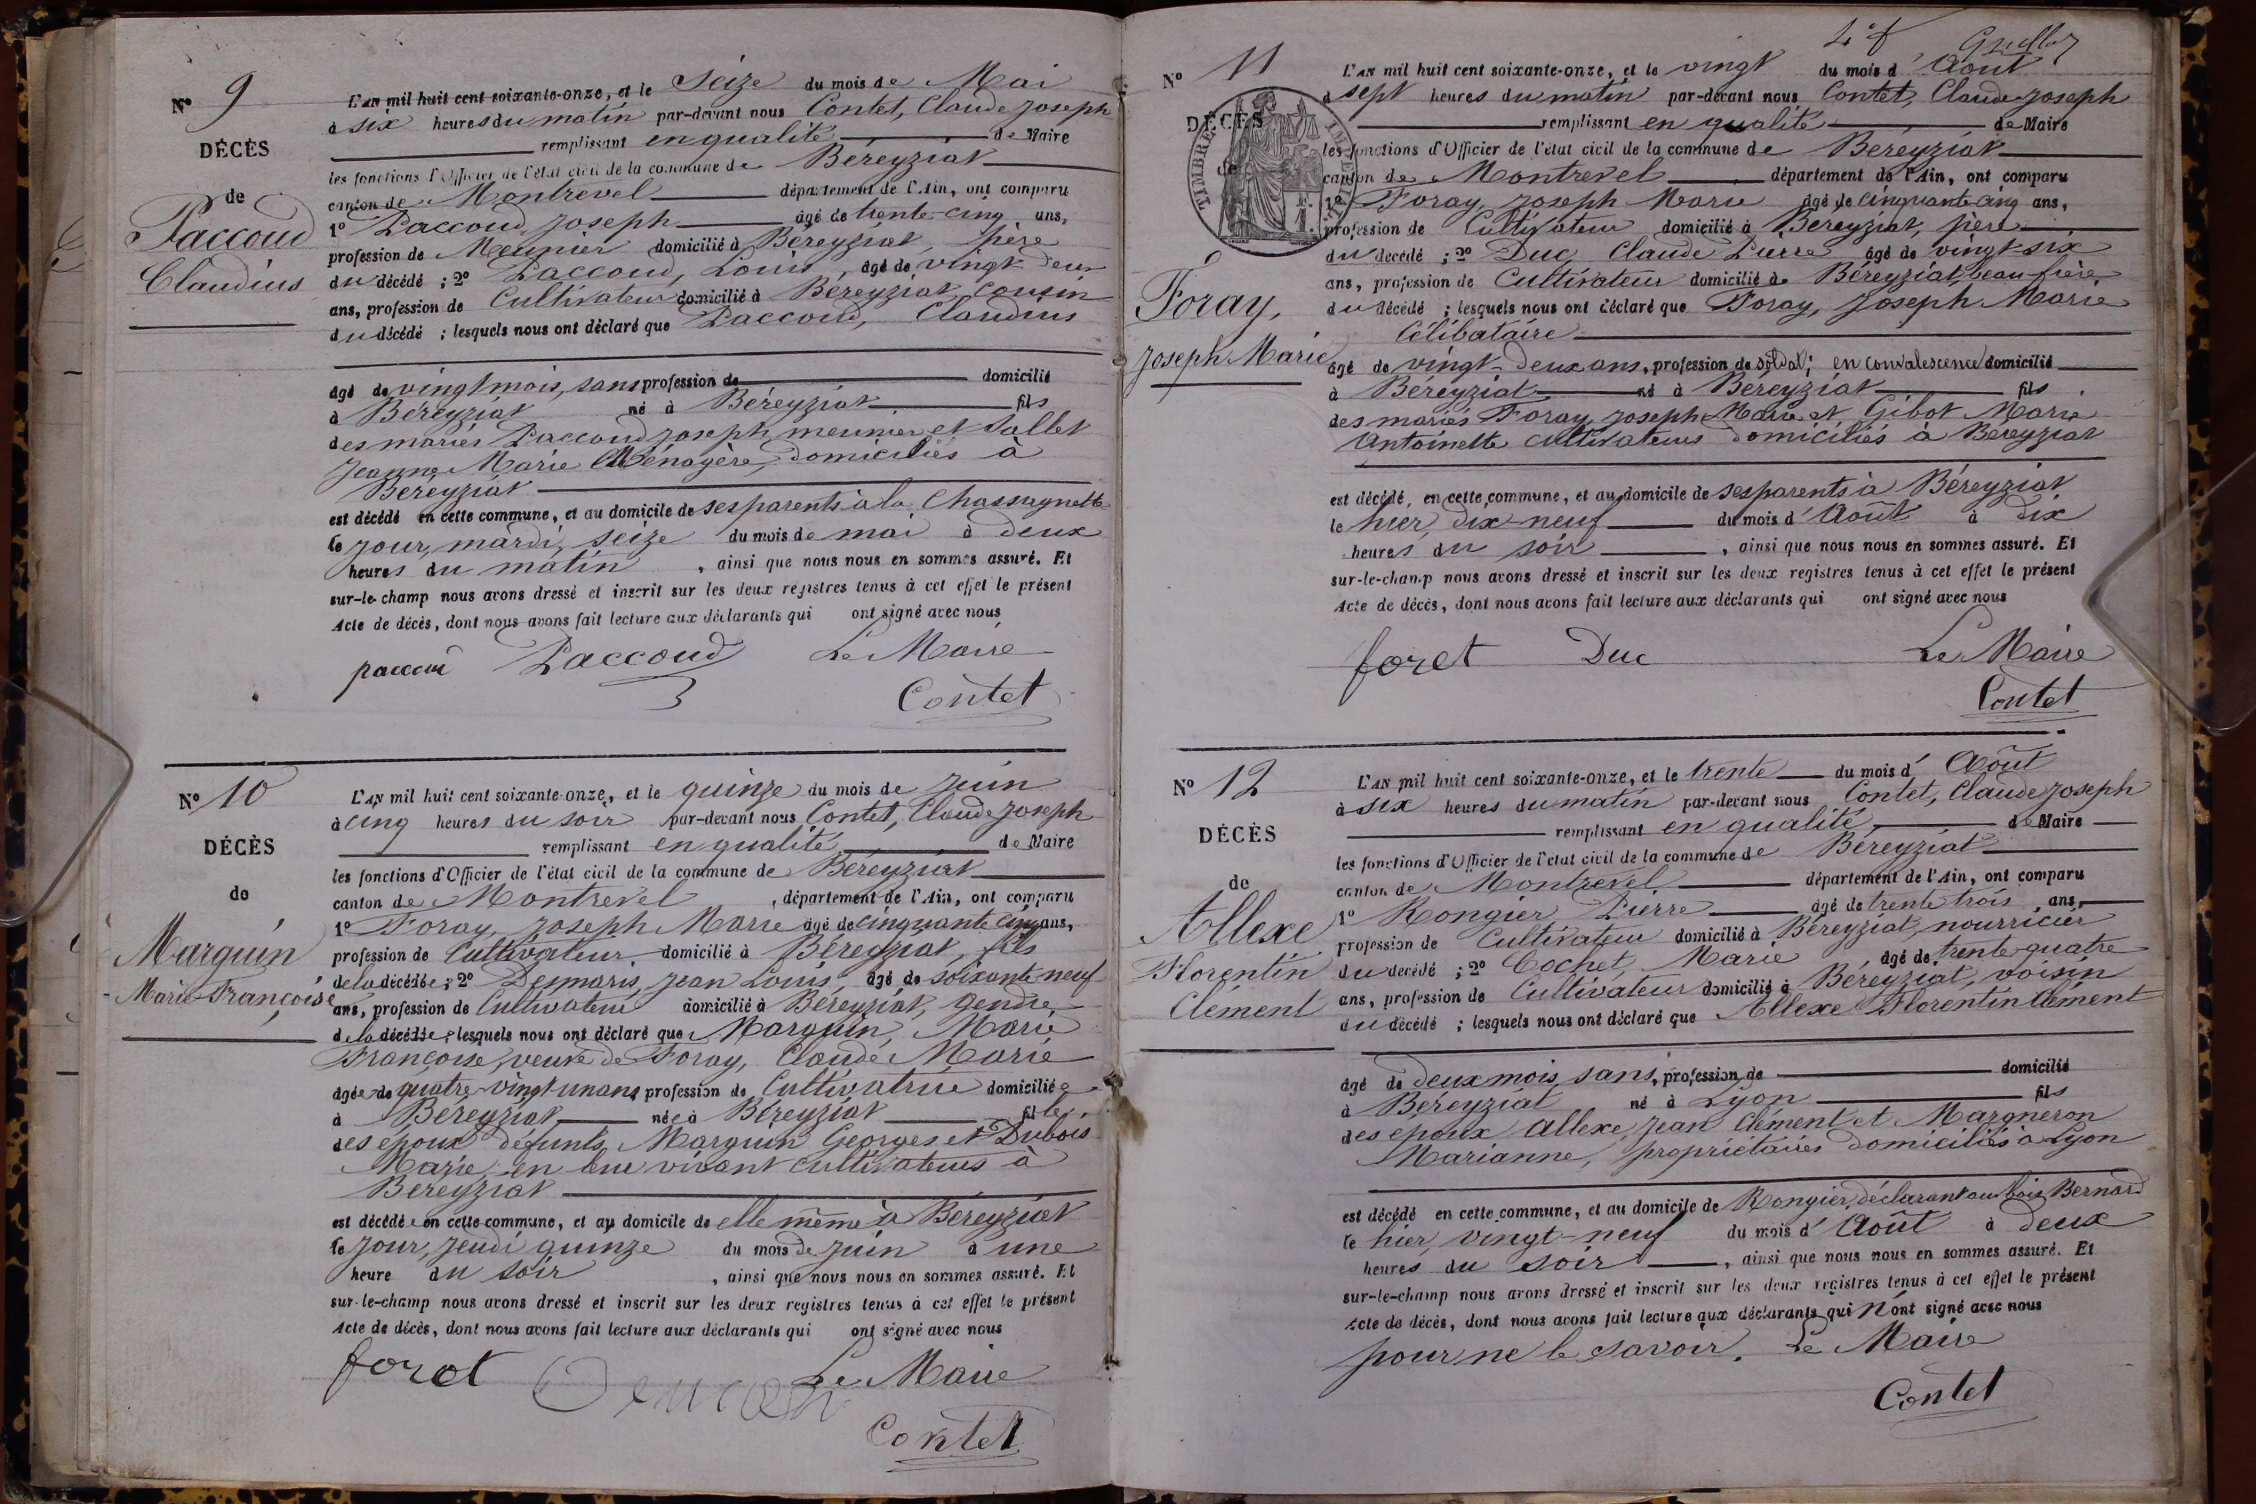 N° 9
DÉCÈS
de
Paccoud
Claudius
L'AN mil huit cent soixante-onze, et le Seize du mois de Mai
à six heures du matin par-devant nous Contet, Claude Joseph
remplissant en qualité de Maire
les fonctions d'Officier de l'état civil de la commune de Béreyziat
canton de Montrevel département de l'Ain, ont comparu
1° Paccoud, Joseph âgé de trente-cinq ans,
profession de Meunier domicilié à Béreyziat, père
du décédé ; 2° Paccoud, Louis, âgé de vingt-deux
ans, profession de Cultivateur domicilié à Béreyziat, cousin
du décédé ; lesquels nous ont déclaré que Paccoud, Claudius
âgé de vingt mois, sans profession de domicilié
à Béreyziat né à Béreyziat fils
des mariés Paccoud Joseph, meunier et Sallet
Jeanne Marie Ménagère, domiciliés à
Béreyziat
est décédé en cette commune, et au domicile de ses parents à la Chassagnette
le jour, mardi, seize du mois de mai à deux
heures du matin, ainsi que nous nous en sommes assuré. Et
sur-le-champ nous avons dressé et inscrit sur les deux registres tenus à cet effet le présent
Acte de décès, dont nous avons fait lecture aux déclarants qui ont signé avec nous
paccou Paccoud Le Maire
Contet
N° 10
DÉCÈS
de
Marguin
Marie Françoise
L'AN mil huit cent soixante-onze, et le quinze du mois de Juin
à cinq heures du soir par-devant nous Contet, Claude Joseph
remplissant en qualité de Maire
les fonctions d'Officier de l'état civil de la commune de Béreyziat
canton de Montrevel, département de l'Ain, ont comparu
1° Foray, Joseph Marie âgé de cinquante cinq ans,
profession de Cultivateur domicilié à Béreyziat, fils
de la décédée ; 2° Desmaris, Jean Louis, âgé de soixante neuf
ans, profession de Cultivateur domicilié à Béreyziat, gendre
de la décédée ; lesquels nous ont déclaré que Marguin, Marie
Françoise, veuve de Foray, Claude Marie
âgée de quatre-vingt un ans, profession de Cultivatrice domiciliée
à Béreyziat née à Béreyziat fille
des epoux défunts, Marguin Georges et Dubois
Marie, en leur vivant cultivateurs à
Béreyziat
est décédée en cette commune, et au domicile de elle même à Béreyziat
le jour, Jeudi quinze du mois de Juin à une
heure du soir, ainsi que nous nous en sommes assuré. Et
sur-le-champ nous avons dressé et inscrit sur les deux registres tenus à cet effet le présent
Acte de décès, dont nous avons fait lecture aux déclarants qui ont signé avec nous
foret Le Maire
Contet
N° 11
DÉCÈS
de
TIMBRE
Foray,
Joseph Marie
L'AN mil huit cent soixante-onze, et le vingt du mois d'Août
à sept heures du matin par-devant nous Contet, Claude Joseph
remplissant en qualité de Maire
les fonctions d'Officier de l'état civil de la commune de Béreyziat
canton de Montrevel département de l'Ain, ont comparu
1° Foray, Joseph Marie âgé de cinquante cinq ans,
profession de Cultivateur domicilié à Béreyziat, père
du décédé ; 2° Duc, Claude Pierre âgé de vingt-six
ans, profession de Cultivateur domicilié de Béreyziat, beau-frère
du décédé ; lesquels nous ont déclaré que Foray, Joseph Marie
Célibataire
âgé de vingt-deux ans, profession de soldat, en convalescence domicilié
à Béreyziat né à Béreyziat fils
des mariés Foray, Joseph Marie et Gibot Marie
Antoinette cultivateurs domiciliés à Béreyziat
est décédé en cette commune, et au domicile de ses parents à Béreyziat
le hier, dix-neuf du mois d'Août à dix
heures du soir, ainsi que nous nous en sommes assuré. Et
sur-le-champ nous avons dressé et inscrit sur les deux registres tenus à cet effet le présent
Acte de décès, dont nous avons fait lecture aux déclarants qui ont signé avec nous
foret Duc Le Maire
Contet
N° 12
DÉCÈS
de
Allexe
Florentin
Clément
L'AN mil huit cent soixante-onze, et le trente du mois d'Août
à six heures du matin par-devant nous Contet, Claude Joseph
remplissant en qualité de Maire
les fonctions d'Officier de l'état civil de la commune de Béreyziat
canton de Montrevel département de l'Ain, ont comparu
1° Rongier, Pierre âgé de trente trois ans,
profession de Cultivateur domicilié à Béreyziat, nourricier
du décédé ; 2° Cochet, Marie âgé de trente-quatre
ans, profession de Cultivateur domicilié à Béreyziat, voisin
du décédé ; lesquels nous ont déclaré que Allexe Florentin Clément
âgé de deux mois, sans, profession de domicilié
à Béreyziat né à Lyon fils
des epoux Allexe, Jean Clément et Margneron
Marianne, propriétaires domiciliés à Lyon
est décédé en cette commune, et au domicile de Rongier, déclarant au bois Bernard
le hier, vingt-neuf du mois d'Août à deux
heures du soir, ainsi que nous nous en sommes assuré. Et
sur-le-champ nous avons dressé et inscrit sur les deux registres tenus à cet effet le présent
Acte de décès, dont nous avons fait lecture aux déclarants qui n'ont signé avec nous
pour ne le savoir. Le Maire
Contet